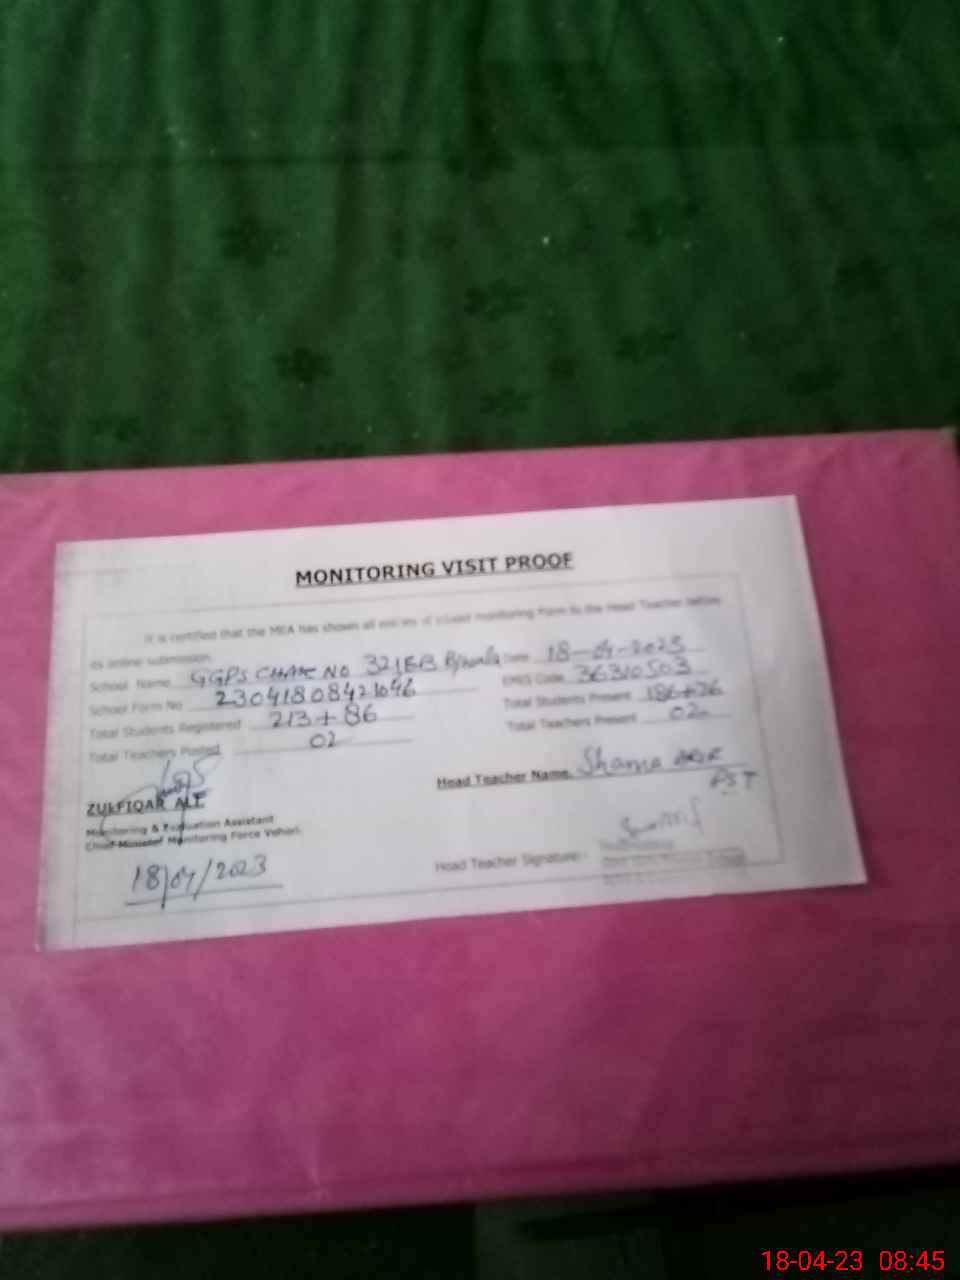 MONITORING VISIT PROOF
It is certified that the MEA has shown all entries of school monitoring Form to the Head Teacher before
its online submission.
School Name GGPS CHAK NO 321EB B/wala Date 18-04-2023
School Form No 23041808421046 EMIS Code 36310503
Total Students Registered 213+86 Total Students Present 186+76
Total Teachers Posted 02 Total Teachers Present 02
ZULFIQAR ALI Head Teacher Name. Shama
PST
Monitoring & Evaluation Assistant
Chief Minister Monitoring Force Vehari.
18/04/2023 Head Teacher Signature:-
18-04-23 08:45